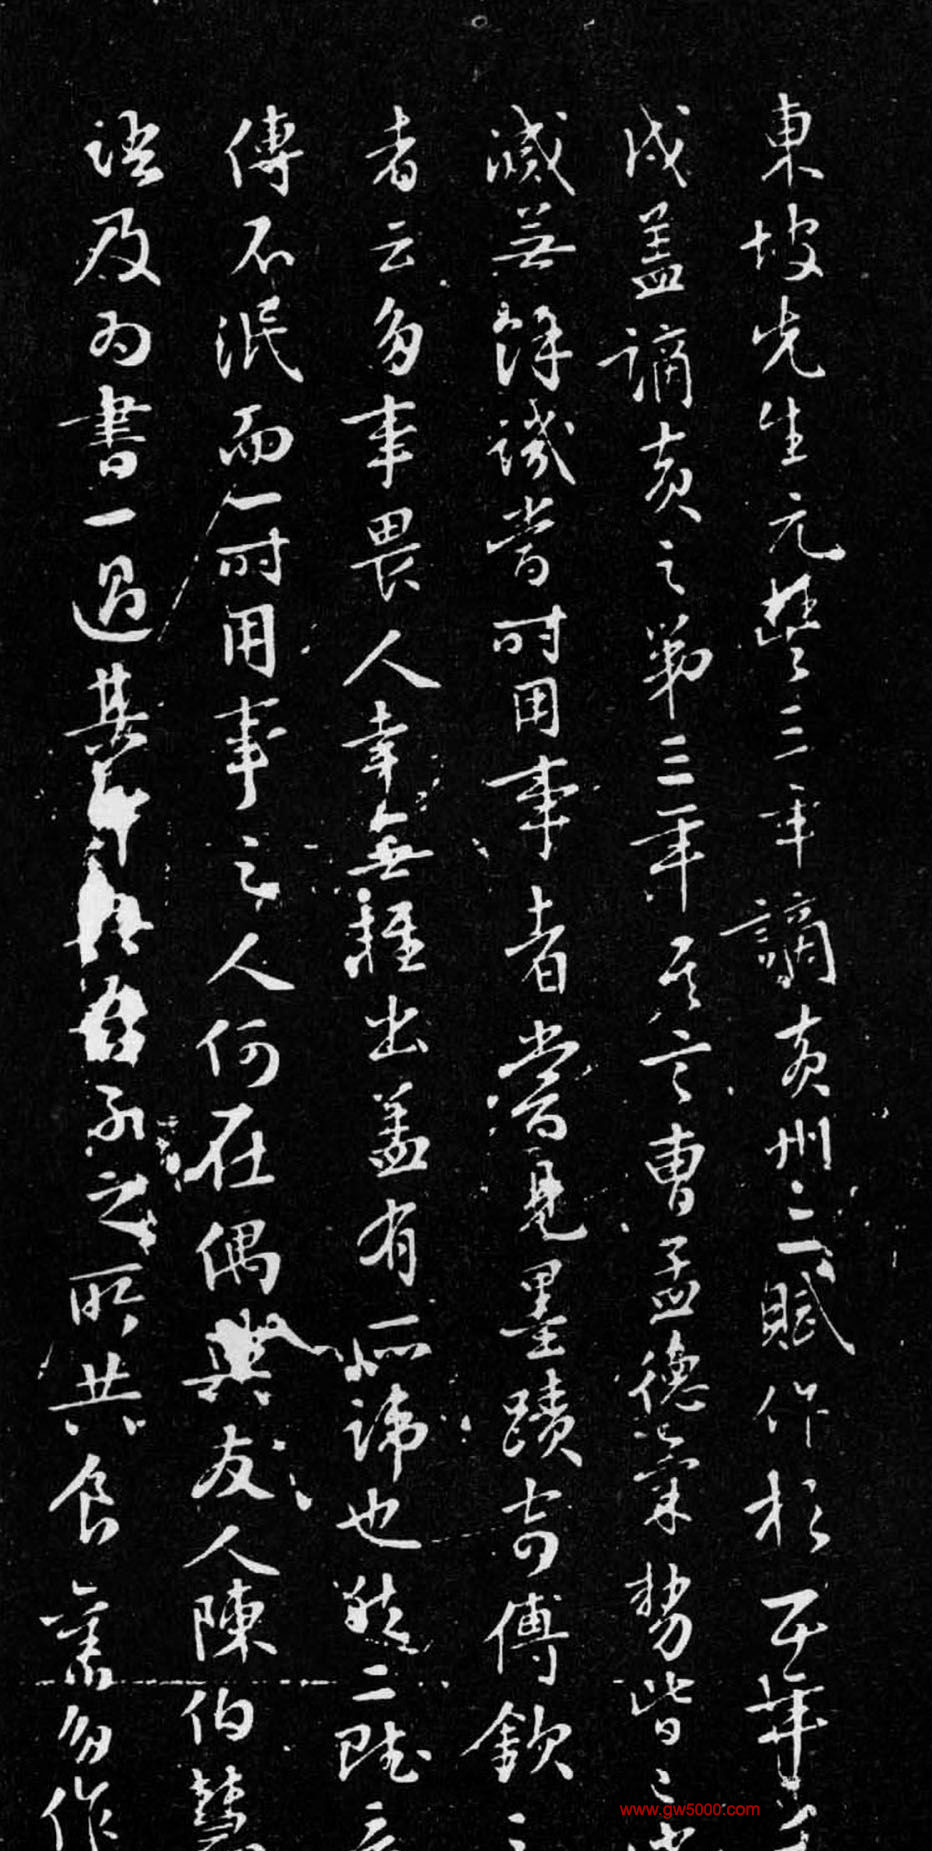 東坡先生元豐三年謫黃州二賦作於五年
戌蓋謫黃之第三年其言曹孟德氣勢皆已
滅無餘譏當時用事者嘗見墨蹟寄傅欽之
者云多事畏人幸無輕出蓋有所諱也然二賦
傳不泯而一時用事之人何在偶與友人陳伯
語及為書一過其
之所共食舊多作
www.gw5000.com